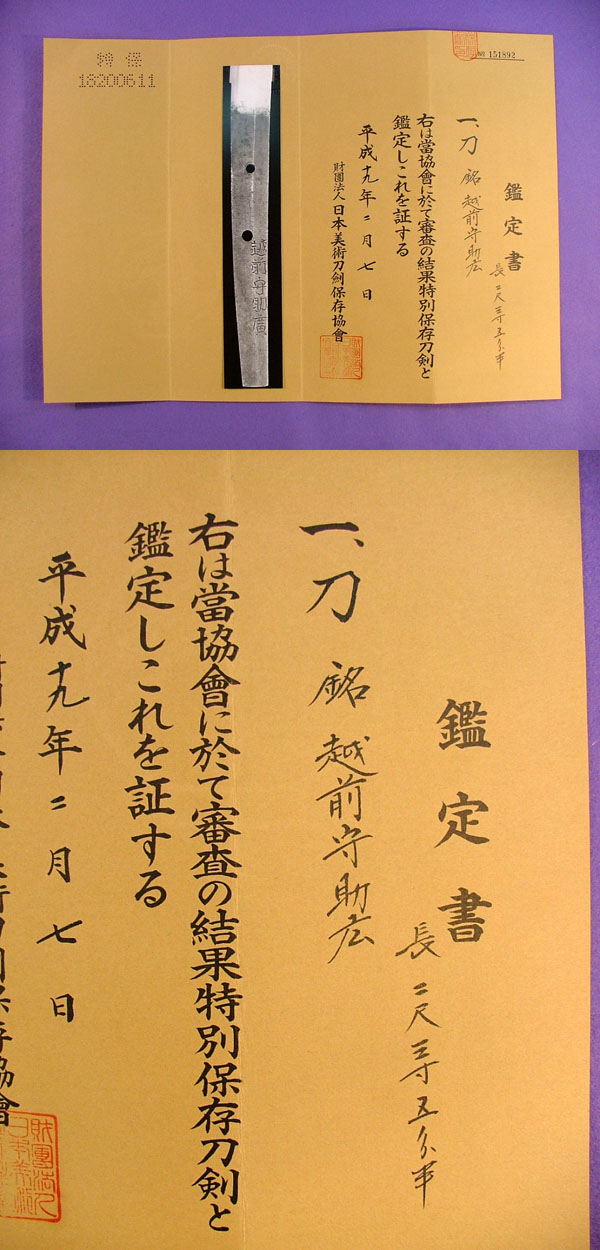 № 151892
鑑定書
一、刀 銘 越前守助広
長 二尺三寸五分半
右は當協會に於て審査の結果特別保存刀剣と
鑑定しこれを証する
平成十九年二月七日
財團法人 日本美術刀剣保存協會
越前守助廣
特保
18200611
鑑定書
長 二尺三寸五分半
一、刀 銘 越前守助広
右は當協會に於て審査の結果特別保存刀剣と
鑑定しこれを証する
平成十九年二月七日